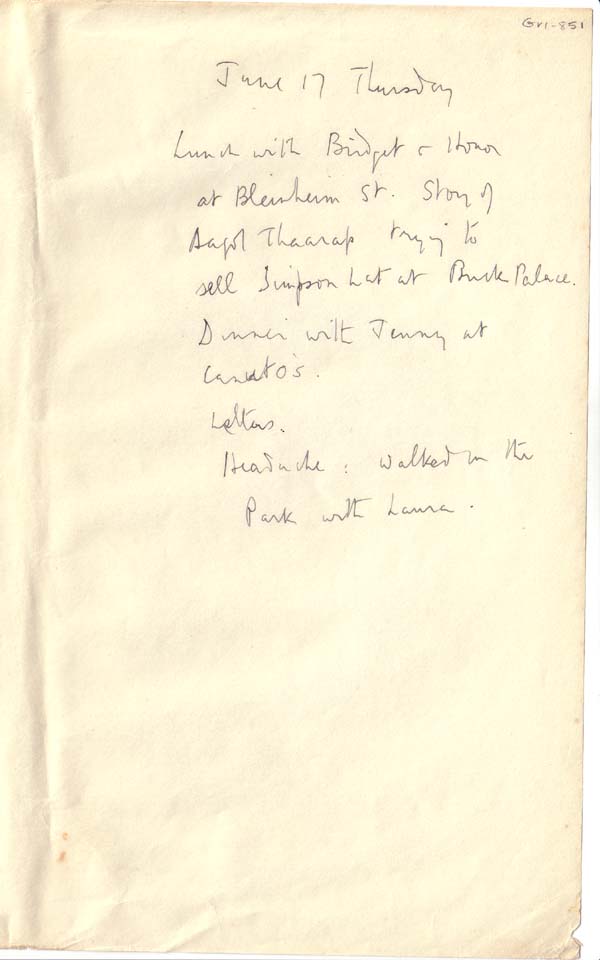 Gr1-851
June 17 Thursday
Lunch with Bridget & Honor
at Blenheim St. Story of
Aage Thaarup trying to
sell Simpson hat at Buck Palace.
Dinner with Jenny at
Casato's.
Letters.
Headache : walked in the
Park with Laura.